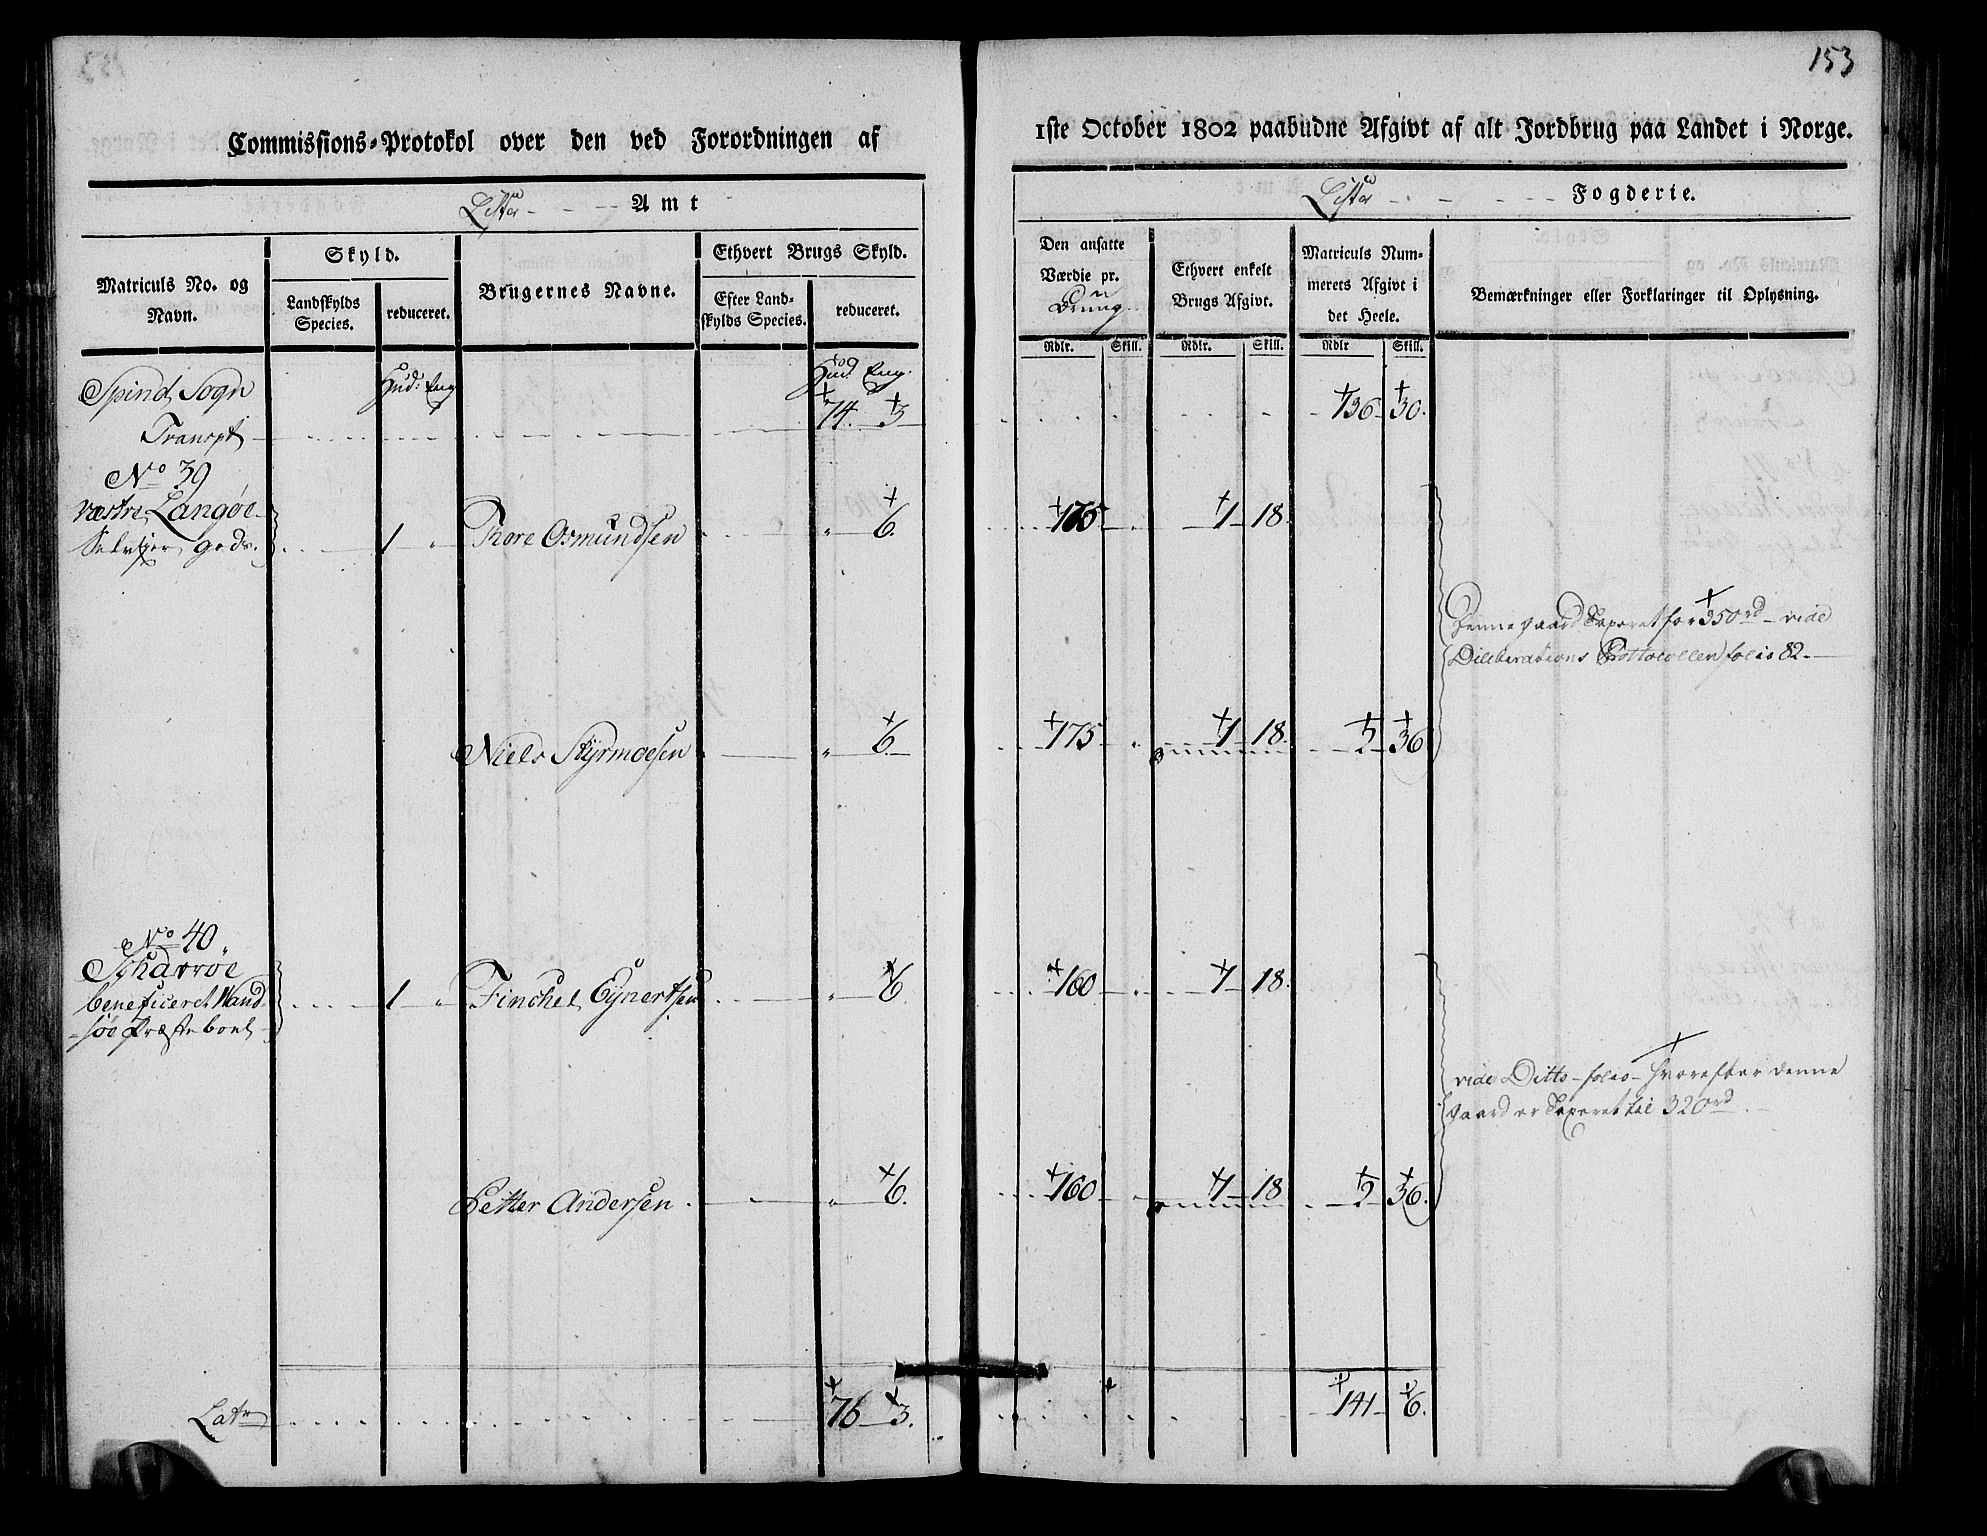 153
Commissions-Protokol over den ved Forordningen af
1ste October 1802 paabudne Afgivt af alt Jordbrug paa Landet i Norge.
Lister Amt
Lister Fogderie.
Matriculs No. og Navn.
Skyld.
Landskylds Species.
reduceret.
Brugernes Navne.
Ethvert Brugs Skyld.
Efter Landskylds Species.
reduceret.
Den ansatte Værdie pr. Brug
Ethvert enkelt Brugs Afgivt.
Matriculs Nummerets Afgivt i det Heele.
Bemærkninger eller Forklaringer til Oplysning.
Rdlr. Skill. Rdlr. Skill. Rdlr Skill.
Spind Sogn Hud: Eng. Hud. Eng.
Transpt 74. 3 136 30.
No 39
væstre Langøe
Selveyer gods. 1 " Thore Osmundsen " 6. 175 1 18.
Denne gaard Taxeret for 350rd - vide
Deliberations Prottocollen folio 82.
Niels Styrmoesen " 6. 175 1 18. 2 36
No 40
Scharvøe
beneficeret Wand
søe Præstebord 1 " Finchel Eynertsen " 6. 160 1 18.
vide Ditto - folio - hvorefter denne
gaard er Taxeret til 320rd.
Petter Andersen. " 6. 160 1 18 2 36.
Latr 76 3. 141 6.